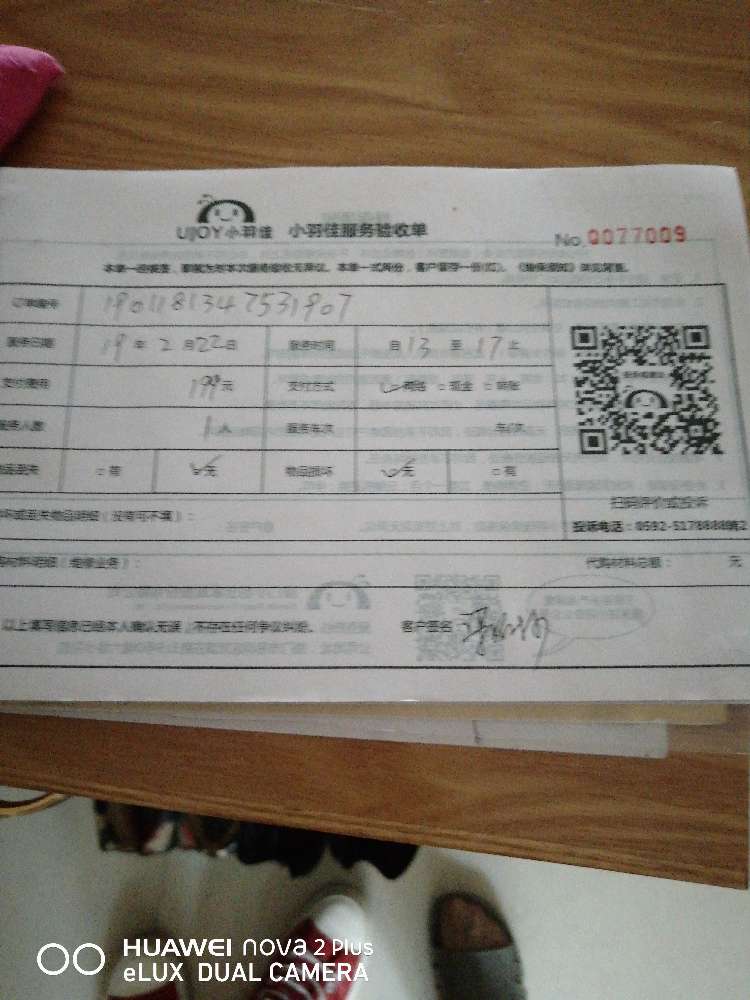 UJOY小羽佳 小羽佳服务验收单
No. 0077009
本单一经签签，即视为对本次服务验收无异议。本单一式两份，客户留存一份(红)。《维保须知》详见背面。
订单编号 1901181347531907
服务日期 19 年 2 月 22 日 服务时间 自 13 至 17 止
支付费用 199 元 支付方式 网络 现金 转账
服务人数 1 人 服务车次 车/次
物品丢失 有 无 物品损坏 无 有
损坏或丢失物品明细（没有可不填）：
扫码评价或投诉
投诉电话：0592-5178888转2
代购材料明细（维修业务）： 代购材料总额： 元
以上填写信息已经本人确认无误，不存在任何争议纠纷。 客户签名
HUAWEI nova 2 Plus
eLUX DUAL CAMERA